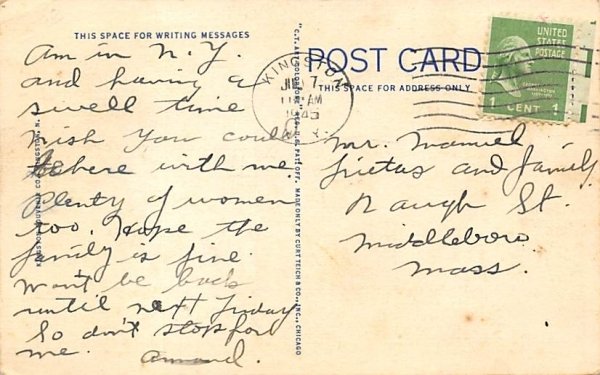 THIS SPACE FOR WRITING MESSAGES
Am in N.Y.
and having a
swell time
wish you could
be here with me.
Plenty of women
too. Hope the
family is fine.
Won't be back
until next Friday
So don't stop for
me. Armand.
"C.T. ART-COLORTONE" REG. U.S. PAT. OFF. MADE ONLY BY CURT TEICH & CO., INC., CHICAGO
POST CARD
THIS SPACE FOR ADDRESS ONLY
KINGSTON
7
AM
1945
UNITED
STATES
POSTAGE
1 CENT 1
Mr. Manuel
Frietas and family
St.
Middleboro
Mass.